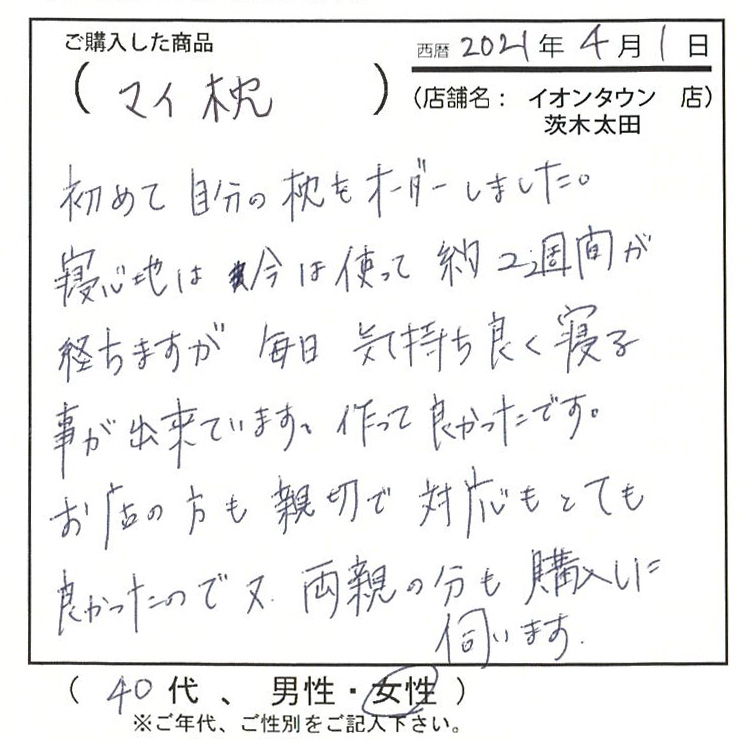 ご購入した商品
西暦 2021年 4月 1日
( マイ枕 )
(店舗名： イオンタウン 店)
茨木太田
初めて自分の枕をオーダーしました。
寝心地は 今は使って 約2週間が
経ちますが 毎日 気持ち良く寝る
事が出来ています。作って良かったです。
お店の方も親切で 対応もとても
良かったので又、両親の分も購入しに
伺います.
( 40代、男性・女性 )
※ご年代、ご性別をご記入下さい。